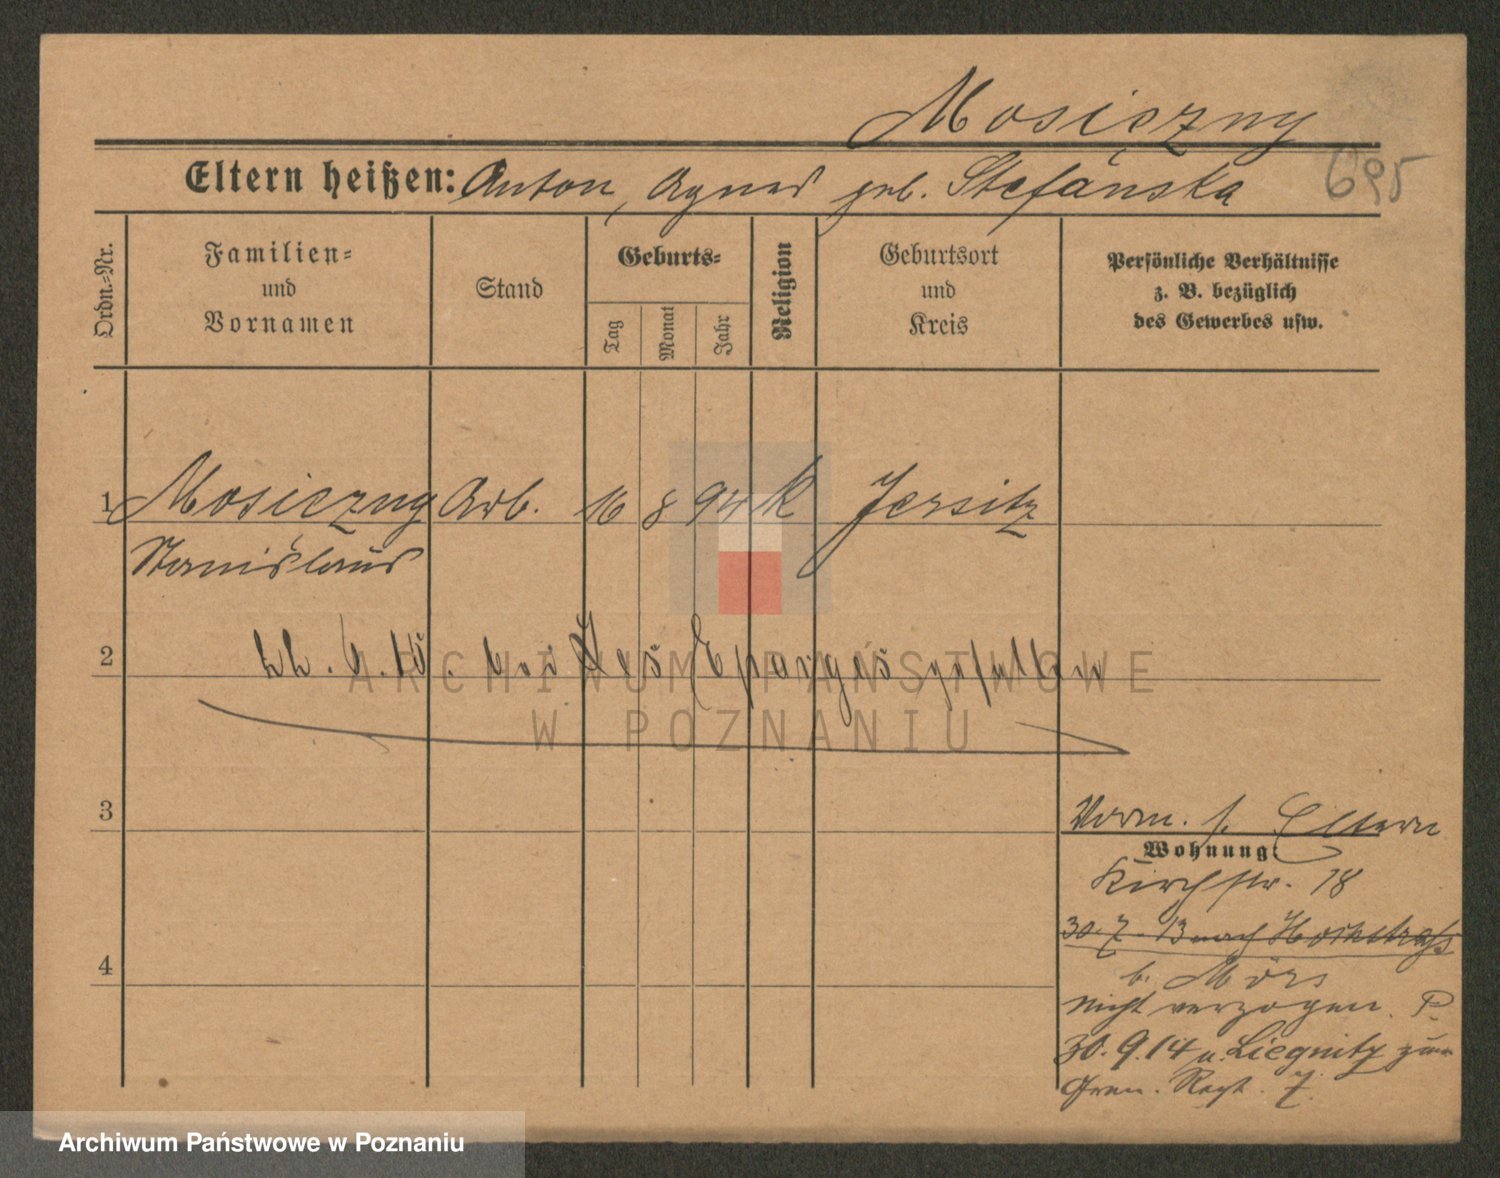 Mosięzny
695
Eltern heißen: Anton, Agnes geb. Stefańska
Ordn.-Nr.
Familien- und Vornamen
Stand
Geburts-
Tag
Monat
Jahr
Religion
Geburtsort und Kreis
Persönliche Verhältnisse z. B. bezüglich des Gewerbes usw.
1 Mosięzny Arb. 16 8 94 K Jersitz
Stanislaus
2
bei Les Eparges gefallen
3
4
Vorm. s. Eltern
Wohnung:
Kirchstr. 18
30. 7. 13 nach
b. Mörs
nicht verzogen. P.
30. 9. 14 n. Liegnitz zum
Gren. Regt. 7.
ARCHIWUM PAŃSTWOWE
W POZNANIU
Archiwum Państwowe w Poznaniu